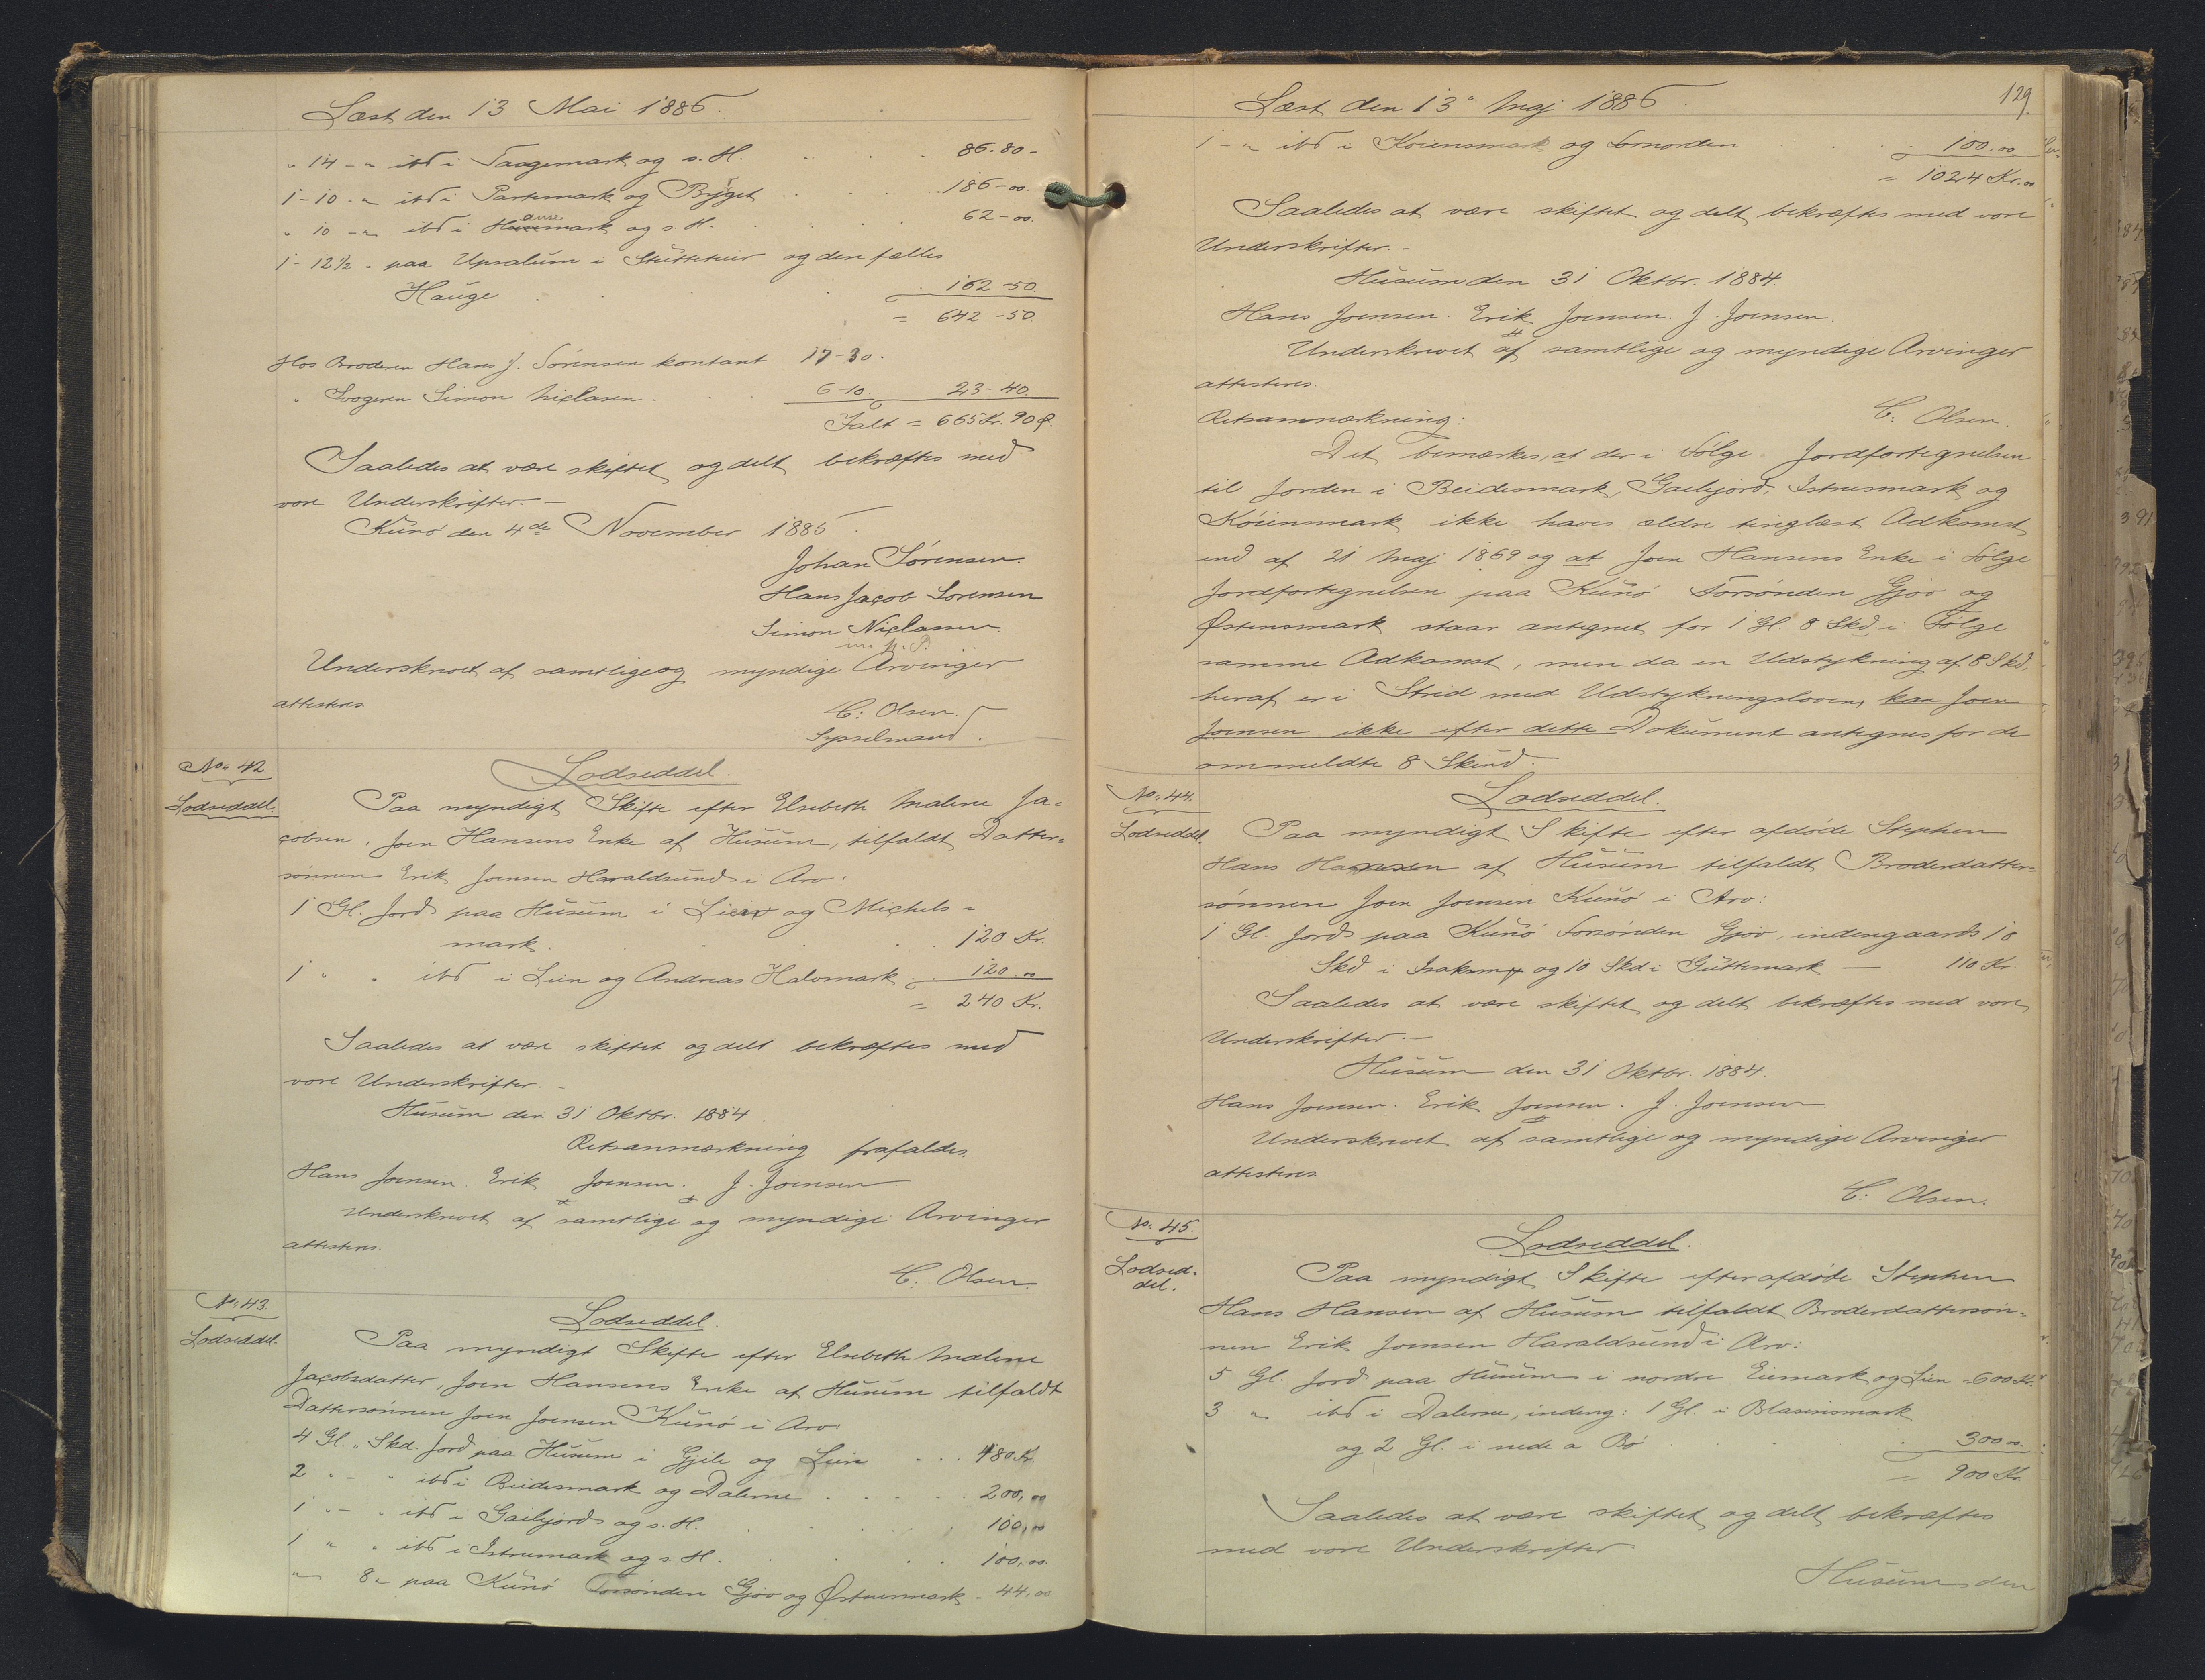 Læst den 13 Mai 1886.
" 14 - " ibd i Taagemark og s. H. 86-80-
1-10-" ibd i Partsmark og Bÿget 186-00.
" 10 -" ibd i og s. H. 62-00.
1-12½ " paa Upsalum i og den fælles
Hauge 162-50.
= 642-50.
Hos Broderen Hans J. Sörensen kontant 17-30.
" Svogeren Simon Niclasen 6-10. 23-40.
Ialt = 665 Kr. 90 Ø.
Saaledes at være skiftet og delt bekræftes med
vore Underskrifter.-
Kunö den 4de November 1885
Johan Sörensen.
Hans Jacob Sörensen
Simon Niclassen
m. p. P.
Underskrevet af samtlige og myndige Arvinger
attesteres.
C: Olsen.
Sysselmand.
No. 42
Lodseddel
Lodseddel.
Paa myndigt Skifte efter Elsebeth Malene Ja=
cobsen, Joen Hansens Enke af Husum, tilfaldt Datter=
sönnen Erik Joensen Haraldsund i Arv:
1 Gl. Jord paa Husum i og Michels=
mark. 120 Kr.
1 " " ibd i Lien og Andreas Halvmark 120.00
= 240 Kr.
Saaledes at være skiftet og delt bekræftes med
vore Underskrifter.-
Husum den 31 Oktbr. 1884.
Retsanmærkning frafaldes.
Hans Joensen. Erik Joensen. J. Joensen
Underskrevet af samtlige og myndige Arvinger
attesteres.
C. Olsen.
No. 43.
Lodseddel.
Lodseddel.
Paa myndigt Skifte efter Elsebeth Malene
Jacobsdatter, Joen Hansens Enke af Husum tilfaldt
Dattersönnen Joen Joensen Kunö i Arv:
4 Gl. " Skd. Jord paa Husum i Gjile og Lien 480 Kr.
2 " - " ibd i Beidesmark og Dalerne 200,00
1 " - " ibd i Gailejord og s. H. 100,00
1 " " ibd i Istrumark og s. H. 100,00.
" 8 " paa Kunö Forsönden Gjov og Östensmark - 44,00
129.
Læst den 13' Maj 1886.
1 - " ibd i Köiensmark og 100,00
= 1024 Kr. 00
Saaledes at være skiftet og delt bekræftes med vore
Underskrifter.-
Husum den 31 Oktbr. 1884.
Hans Joensen. Erik Joensen. J. Joensen.
Underskrevet af samtlige og myndige Arvinger
attesteres.
C: Olsen.
Retsanmærkning:
Det bemærkes, at der i Fölge Jordfortegnelsen
til Jorden i Beidesmark, Gailejord, Istrusmark og
Köiensmark ikke haves ældre tinglæst Adkomst
end af 21 Maj 1869 og at Joen Hansens Enke i Fölge
Jordfortegnelsen paa Kunö Forsönden Gjov og
Østensmark staar antegnet for 1 Gl. 8 Skd. i Fölge
samme Adkomst, men da en Udstykning af 8 Skd.
heraf er i Strid med Udstykningsloven, kan Joen
Joensen ikke efter dette Dokument antegnes for de
ommeldte 8 Skind.
No. 44.
Lodseddel.
Lodseddel.
Paa myndigt Skifte efter afdöde Stephen
Hans Hansen af Husum tilfaldt Broderdatter=
sönnen Joen Joensen Kunö i Arv:
1 Gl. Jord paa Kunö Forsönden Gjov, indengaards 10
Skd i og 10 Skd i Guttemark — 110 Kr.
Saaledes at være skiftet og delt bekræftes med vore
Underskrifter.-
Husum den 31 Oktbr. 1884.
Hans Joensen. Erik Joensen. J. Joensen.
Underskrevet af samtlige og myndige Arvinger
attesteres.
C: Olsen.
No. 45.
Lodsed-
del.
Lodseddel.
Paa myndigt Skifte efter afdöde Stephen
Hans Hansen af Husum tilfaldt Broderdattersön=
nen Erik Joensen Haraldsund i Arv:
5 Gl. Jord paa Husum i nordre Eiemark og Lien - 600 Kr.
3 " ibd i Dalerne, indeng: 1 Gl. i Blasinsmark
og 2 Gl. i nede a Bö 300 00.
= 900 Kr.
Saaledes at være skiftet og delt bekræftes
med vore Underskrifter
Husum den